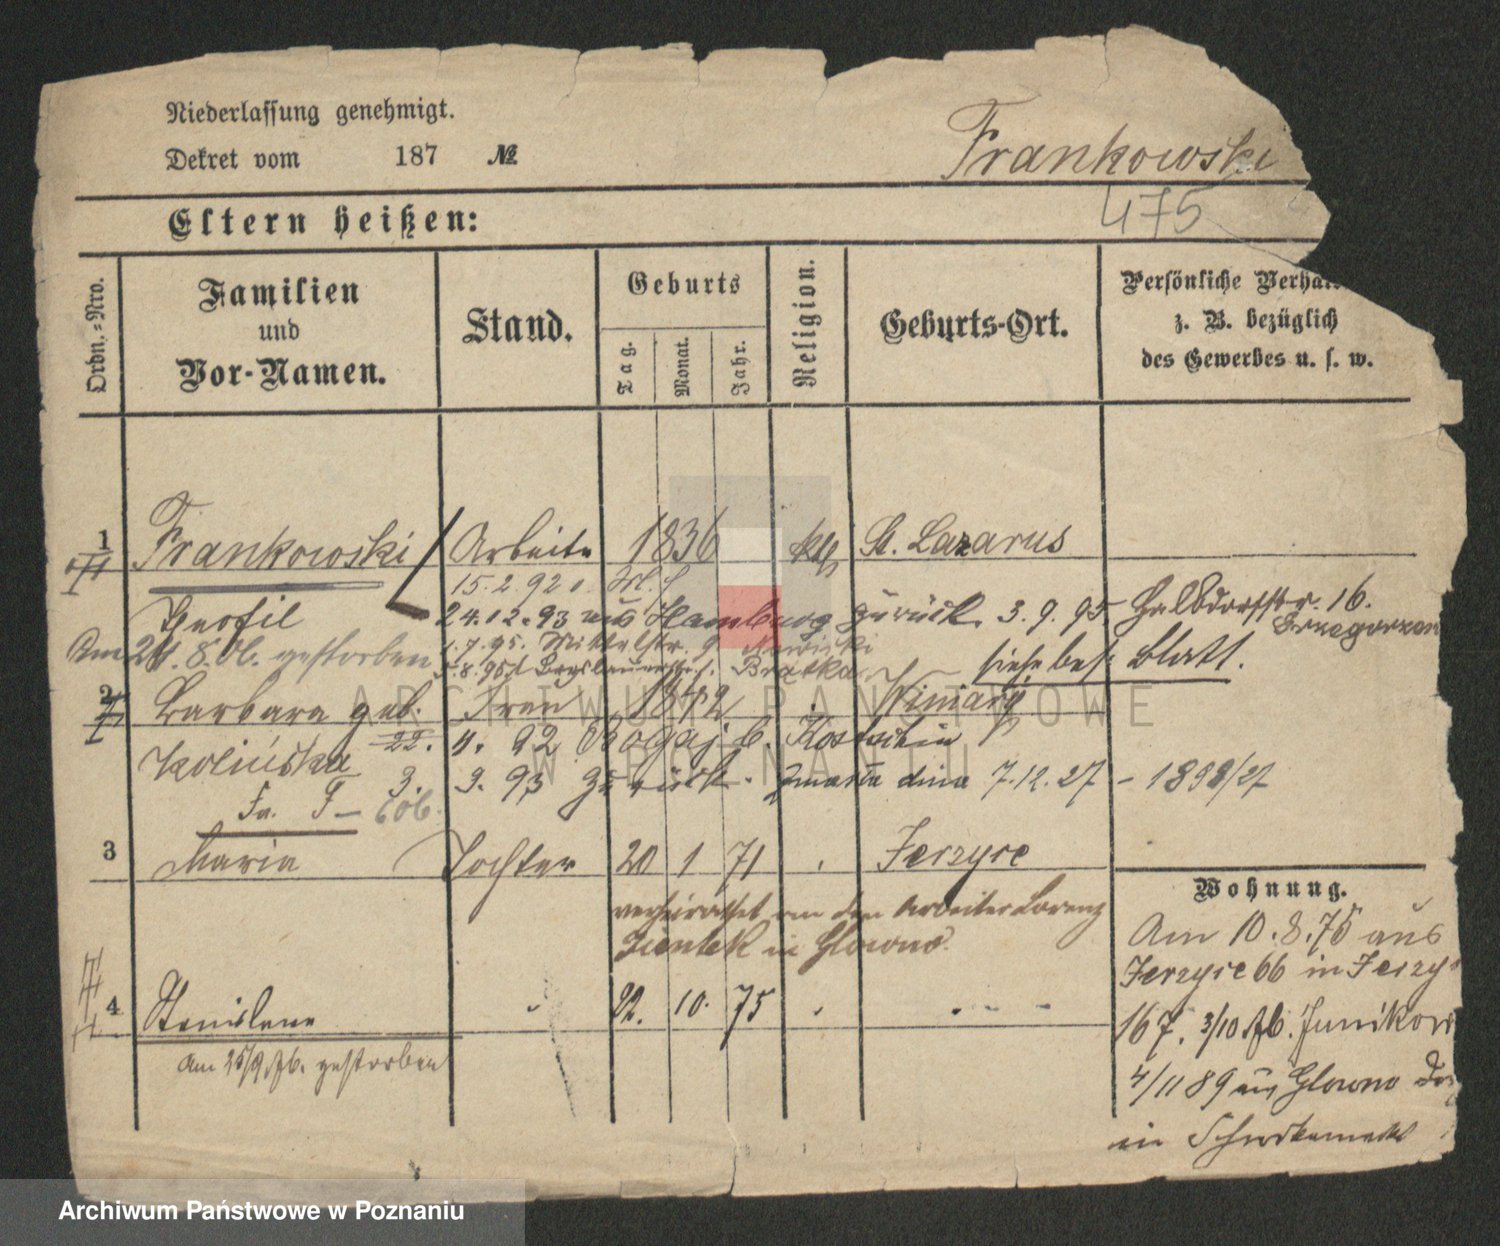 Niederlassung genehmigt.
Dekret vom 187 №
Frankowski
475
Eltern heißen:
Ordn.-Nro.
Familien
und
Vor-Namen.
Stand.
Geburts
Tag.
Monat.
Jahr.
Religion.
Geburts-Ort.
Persönliche Verhäl
z. B. bezüglich
des Gewerbes u. s. w.
1 Frankowski Arbeiter 1836 kth St. Lazarus
15.2.92
Teofil 24.12.93 aus Hamburg zurück. 3.9.95 Halbdorfstr. 16.
Am 24.8.06. gestorben 1.7.95. Mittelstr. 9 Nowicki
siehe bes. Blatt.
2 Barbara geb. Frau 1842 Winiary
Kolinska 22. 4. 92 Bogaj b. Kostschin
3. 9. 93 zurück. zmarła dnia 7.12.27 – 1898/27
3 Maria Tochter 20 1 71 Jerzyce
verheirathet an den Arbeiter Lorenz
in Glowno
4 Stanislaus 22. 10. 75
am 25/9.76. gestorben
Wohnung.
Am 10.8.75 aus
Jerzyce 66 in Jerzy
167. 3/10.76. Junikow
4/11 89 aus Glowno
in
ARCHIWUM PAŃSTWOWE
W POZNANIU
Archiwum Państwowe w Poznaniu